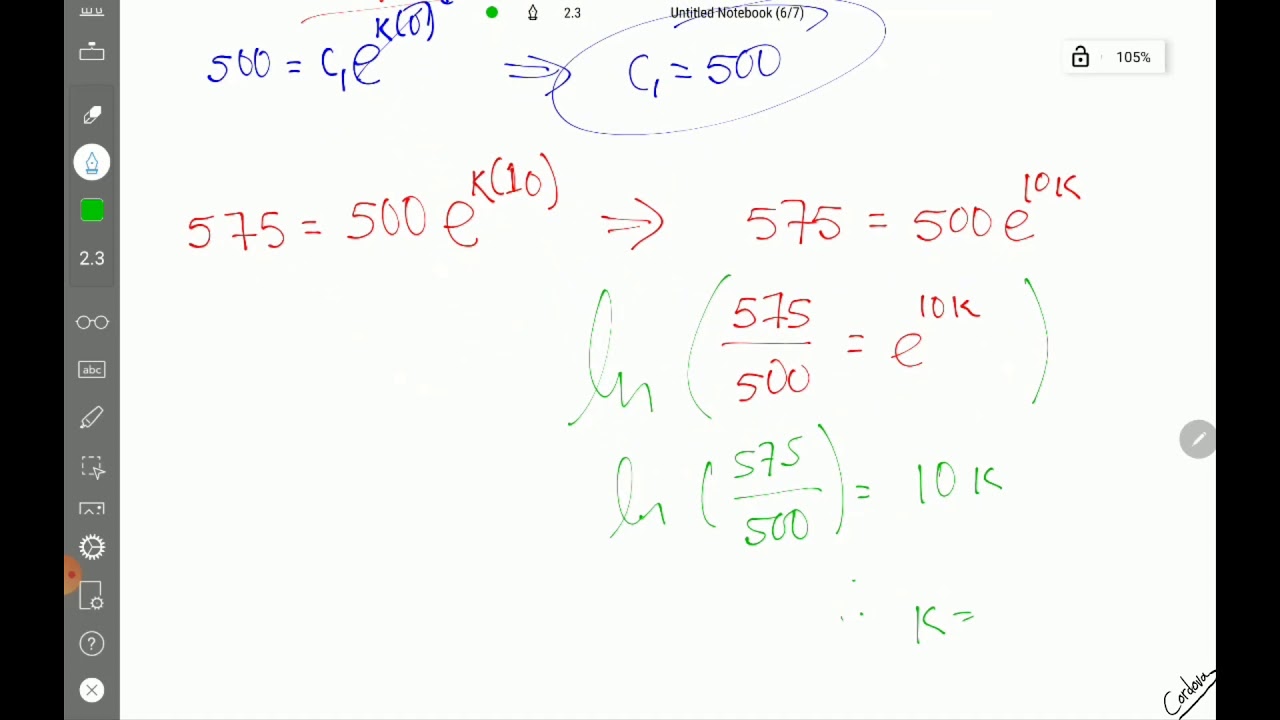 2.3 Untitled Notebook (6/7)
500 = C₁e^{K(0)} ⇒ C₁ = 500
105%
575 = 500 e^{K(10)} ⇒ 575 = 500e^{10K}
ln ( 575/500 = e^{10K} )
2.3
abc
ln ( 575/500 ) = 10K
∴ K =
?
Cordova